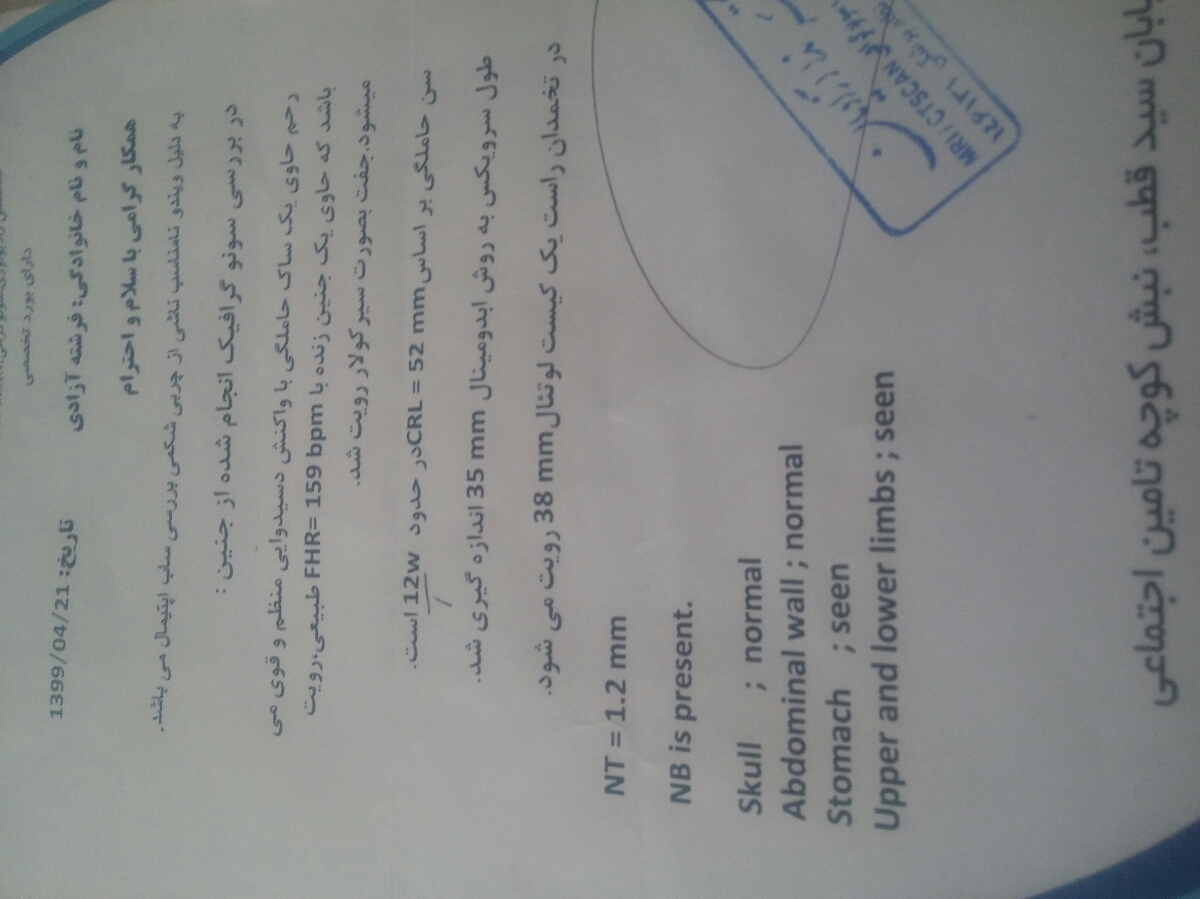 دارای بورد تخصصی
نام و نام خانوادگی: فرشته آزادی
تاریخ: 1399/04/21
همکار گرامی با سلام و احترام
به دلیل ویندو نامناسب ناشی از چربی شکمی بررسی ساب اپتیمال می باشد.
در بررسی سونو گرافیک انجام شده از جنین :
رحم حاوی یک ساک حاملگی با واکنش دسیدوایی منظم و قوی می
باشد که حاوی یک جنین زنده با FHR= 159 bpm طبیعی،رویت
میشود.جفت بصورت سیرکولار رویت شد.
سن حاملگی بر اساس CRL = 52 mm در حدود 12w است.
طول سرویکس به روش ابدومینال 35 mm اندازه گیری شد.
در تخمدان راست یک کیست لوتئال 38 mm رویت می شود.
NT = 1.2 mm
NB is present.
Skull ; normal
Abdominal wall ; normal
Stomach ; seen
Upper and lower limbs ; seen
MRI / CTSCAN
سید قطب، نبش کوچه تامین اجتماعی